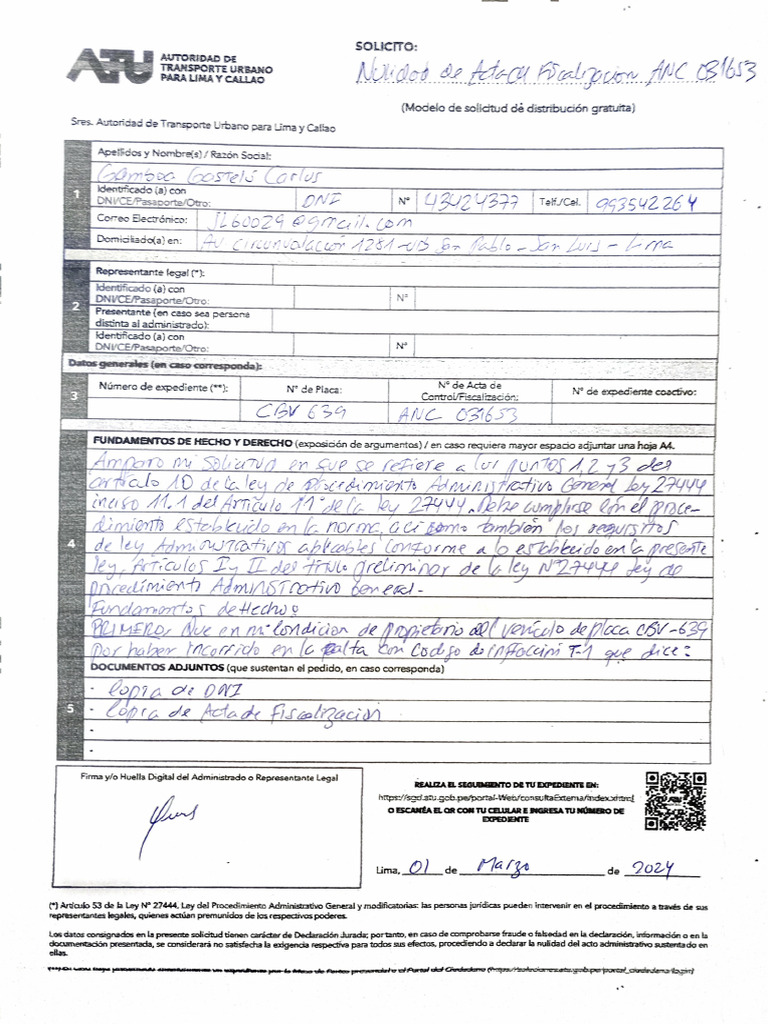 ATU AUTORIDAD DE
TRANSPORTE URBANO
PARA LIMA Y CALLAO
SOLICITO:
Nulidad de Acta de Fiscalizacion ANC 031653
(Modelo de solicitud de distribución gratuita)
Sres. Autoridad de Transporte Urbano para Lima y Callao
1
Apellidos y Nombre(s) / Razón Social:
Gamboa Gastelú Carlos
Identificado (a) con
DNI/CE/Pasaporte/Otro: DNI Nº 43424377 Telf./Cel. 993542264
Correo Electrónico: JL60029@gmail.com
Domiciliado(a) en: Av Circunvalación 1281-urb San Pablo - San Luis - Lima
2
Representante legal (*):
Identificado (a) con
DNI/CE/Pasaporte/Otro: Nº
Presentante (en caso sea persona
distinta al administrado):
Identificado (a) con
DNI/CE/Pasaporte/Otro: Nº
Datos generales (en caso corresponda):
3
Número de expediente (**): Nº de Placa: Nº de Acta de Control/Fiscalización: Nº de expediente coactivo:
CBV 639 ANC 031653
4
FUNDAMENTOS DE HECHO Y DERECHO (exposición de argumentos) / en caso requiera mayor espacio adjuntar una hoja A4.
Amparo mi Solicitud en que se refiere a los puntos 1,2 y 3 del
artículo 10 de la ley de Procedimiento Administrativo General Ley 27444
inciso 11.1 del Artículo 11° de la ley 27444. Debe cumplirse con el proce-
dimiento establecido en la norma, aci como también los requisitos
de ley Administrativos aplicables conforme a lo establecido en la presente
ley, Artículos I y II del titulo preliminar de la ley Nº27444 ley de
procedimiento Administrativo General-
Fundamentos de Hecho:
PRIMERO, Que en mi condicion de propietario del vehículo de placa CBV-639
por haber incorrido en la falta con Codigo de infraccion T-1 que dice:
5
DOCUMENTOS ADJUNTOS (que sustentan el pedido, en caso corresponda)
- Copia de DNI
- Copia de Acta de Fiscalización
-
-
Firma y/o Huella Digital del Administrado o Representante Legal
REALIZA EL SEGUIMIENTO DE TU EXPEDIENTE EN:
https://sgd.atu.gob.pe/portal-Web/consultaExterna/index.xhtml
O ESCANÉA EL QR CON TU CELULAR E INGRESA TU NÚMERO DE
EXPEDIENTE
Lima, 01 de Marzo de 2024
(*) Artículo 53 de la Ley Nº 27444, Ley del Procedimiento Administrativo General y modificatorias: las personas jurídicas pueden intervenir en el procedimiento a través de sus
representantes legales, quienes actúan premunidos de los respectivos poderes.
Los datos consignados en la presente solicitud tienen carácter de Declaración Jurada; por tanto, en caso de comprobarse fraude o falsedad en la declaración, información o en la
documentación presentada, se considerará no satisfecha la exigencia respectiva para todos sus efectos, procediendo a declarar la nulidad del acto administrativo sustentado en
ellas.